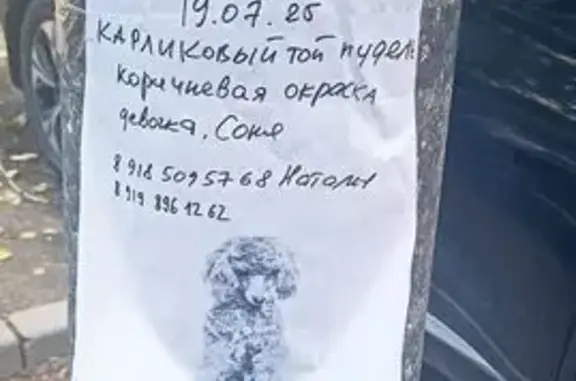 19.07.25
КАРЛИКОВЫЙ ТОЙ ПУДЕЛЬ
коричневая окраска
девочка, Соня
8 918 5095768 Наталья
8 919 896 12 62